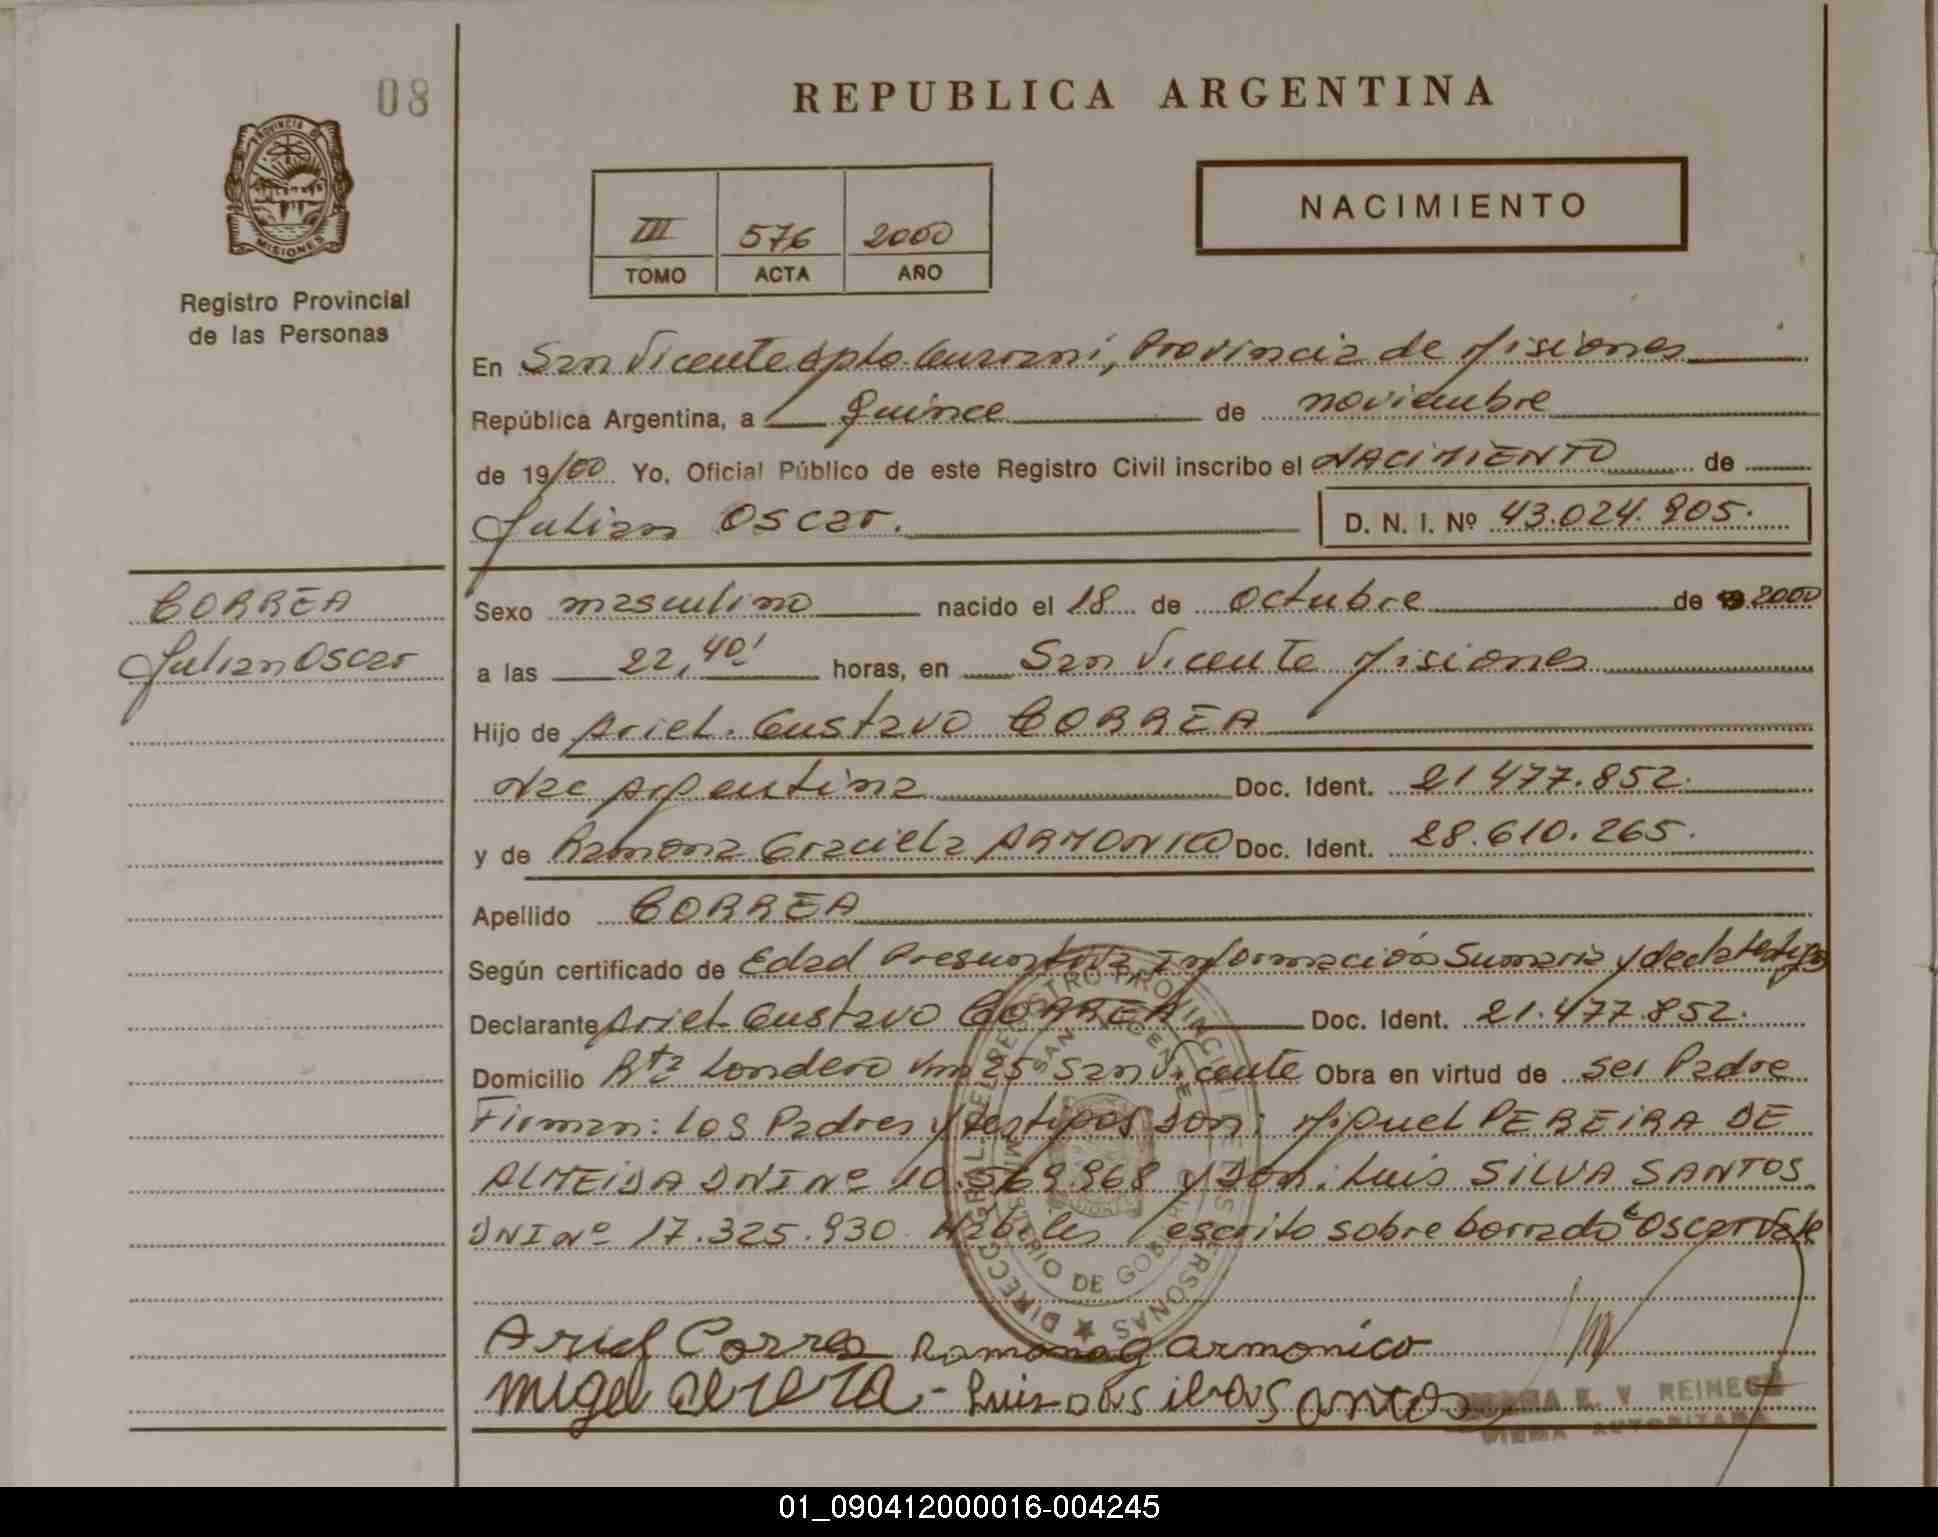 08
REPUBLICA ARGENTINA
PROVINCIA DE
MISIONES
Registro Provincial
de las Personas
III 576 2000
TOMO ACTA AÑO
NACIMIENTO
En San Vicente dpto. Guaraní, Provincia de Misiones
República Argentina, a Quince de noviembre
de 19/00 Yo, Oficial Público de este Registro Civil inscribo el NACIMIENTO de
Julian Oscar. D. N. I. Nº 43.024.905.
CORREA
Julian Oscar
Sexo masculino nacido el 18 de octubre de 2000
a las 22,40' horas, en San Vicente Misiones
Hijo de Ariel Gustavo CORREA
Nac Argentina Doc. Ident. 21.477.852.
y de Ramona Graciela ARMONICO Doc. Ident. 28.610.265.
Apellido CORREA
Según certificado de Edad Presuntiva Información Sumaria y decla testigo
Declarante Ariel Gustavo CORREA Doc. Ident. 21.477.852.
Domicilio Rta Londero km 25 San Vicente Obra en virtud de ser Padre
Firman: los Padres y testigos don: Miguel PEREIRA DE
ALMEIDA DNI Nº 10.569.968 y don: Luis SILVA SANTOS
DNI Nº 17.325.930 Habiles / escrito sobre borrado "Oscar" Vale
Ariel Correa Ramona g armonico
Luis
REINECK
FIRMA AUTORIZADA
01_090412000016-004245